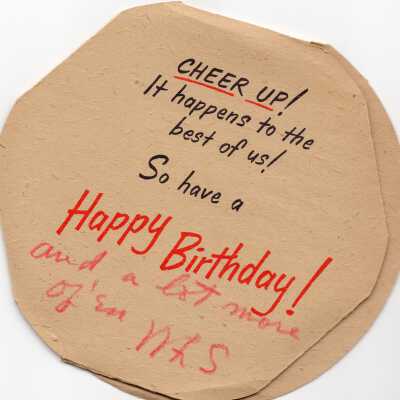 CHEER UP!
It happens to the
best of us!
So have a
Happy Birthday!
and a lot more
of 'em
WLS